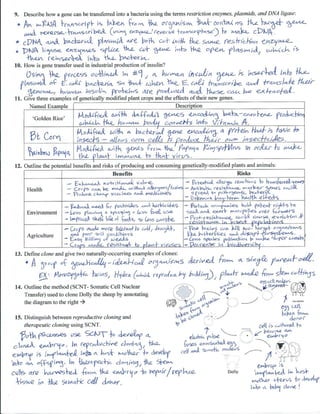 9. Describe how a gene can be transferred into a bacteria using the terms restriction enzymes, plasmids, and DNA ligase.
• An mRNA transcript is taken from the organism that contains the target gene
and reverse-transcribed (using enzyme "reverse transcriptase") to make cDNA.
• cDNA and bacterial plasmid are both cut with the same restriction enzyme.
• DNA ligase enzymes splice the cut gene into the open plasmid, which is
then reinserted into the bacteria.
10. How is gene transfer used in industrial production of insulin?
Using the process outlined in #9, a human insulin gene is inserted into the
plasmid of E. coli bacteria so that when the E. coli transcribe and translate their
genome, human insulin proteins are produced and these can be extracted.
11. Give three examples of genetically modified plant crops and the effects of their new genes.
Named Example Description
'Golden Rice' Modified with daffodil genes encoding beta-carotene production
which the human body converts into Vitamin A.
Bt Corn Modified with a bacterial gene encoding a protein that is toxic to
insects – allows corn cells to produce their own insecticides.
Rainbow Papaya Modified with genes from the Papaya Ringspot Virus in order to make
the plant immune to that virus.
12. Outline the potential benefits and risks of producing and consuming genetically-modified plants and animals.
Benefits Risks
Health - Enhanced nutritional value
- Crops can be made without allergens/toxins
- Produce cheap vaccines and medicines
- Potential allergic reactions to transferred genes
- Antibiotic resistance marker genes could
spread to pathogenic bacteria
- Unknown long-term health effects
Environment - Reduced need for pesticides and herbicides
- Less plowing + spraying = less fuel used
- Improved shelf life of foods, so less waste
- Biotech companies hold patent rights to
seed and exert monopolies over farmers
Agriculture - Crops made more tolerant to cold, drought,
and poor soil conditions
- Easy killing of weeds
- Crops made resistant to plant viruses
- Decrease in biodiversity
13. Define clone and give two naturally-occurring examples of clones:
• A group of genetically-identical organisms derived from a single parent cell.
Ex: Monozygotic twins, Hydra (which reproduce by budding), plants made from stem cuttings
14. Outline the method (SCNT- Somatic Cell Nuclear
Transfer) used to clone Dolly the sheep by annotating
the diagram to the right →
15. Distinguish between reproductive cloning and
therapeutic cloning using SCNT.
Both processes use SCNT to develop a
cloned embryo. In reproductive cloning, the
embryo is implanted into a host mother to develop
into an offspring. In therapeutic cloning, the stem
cells are harvested from the embryo to repair/replace
tissue in the somatic cell donor.
egg cell
taken from
donor
electric pulse
fuses enucleated egg
cell and somatic nucleus
cell is cultured to
become an
embryo
Dolly
embryo is
implanted in host
mother uterus to develop
into a baby clone!